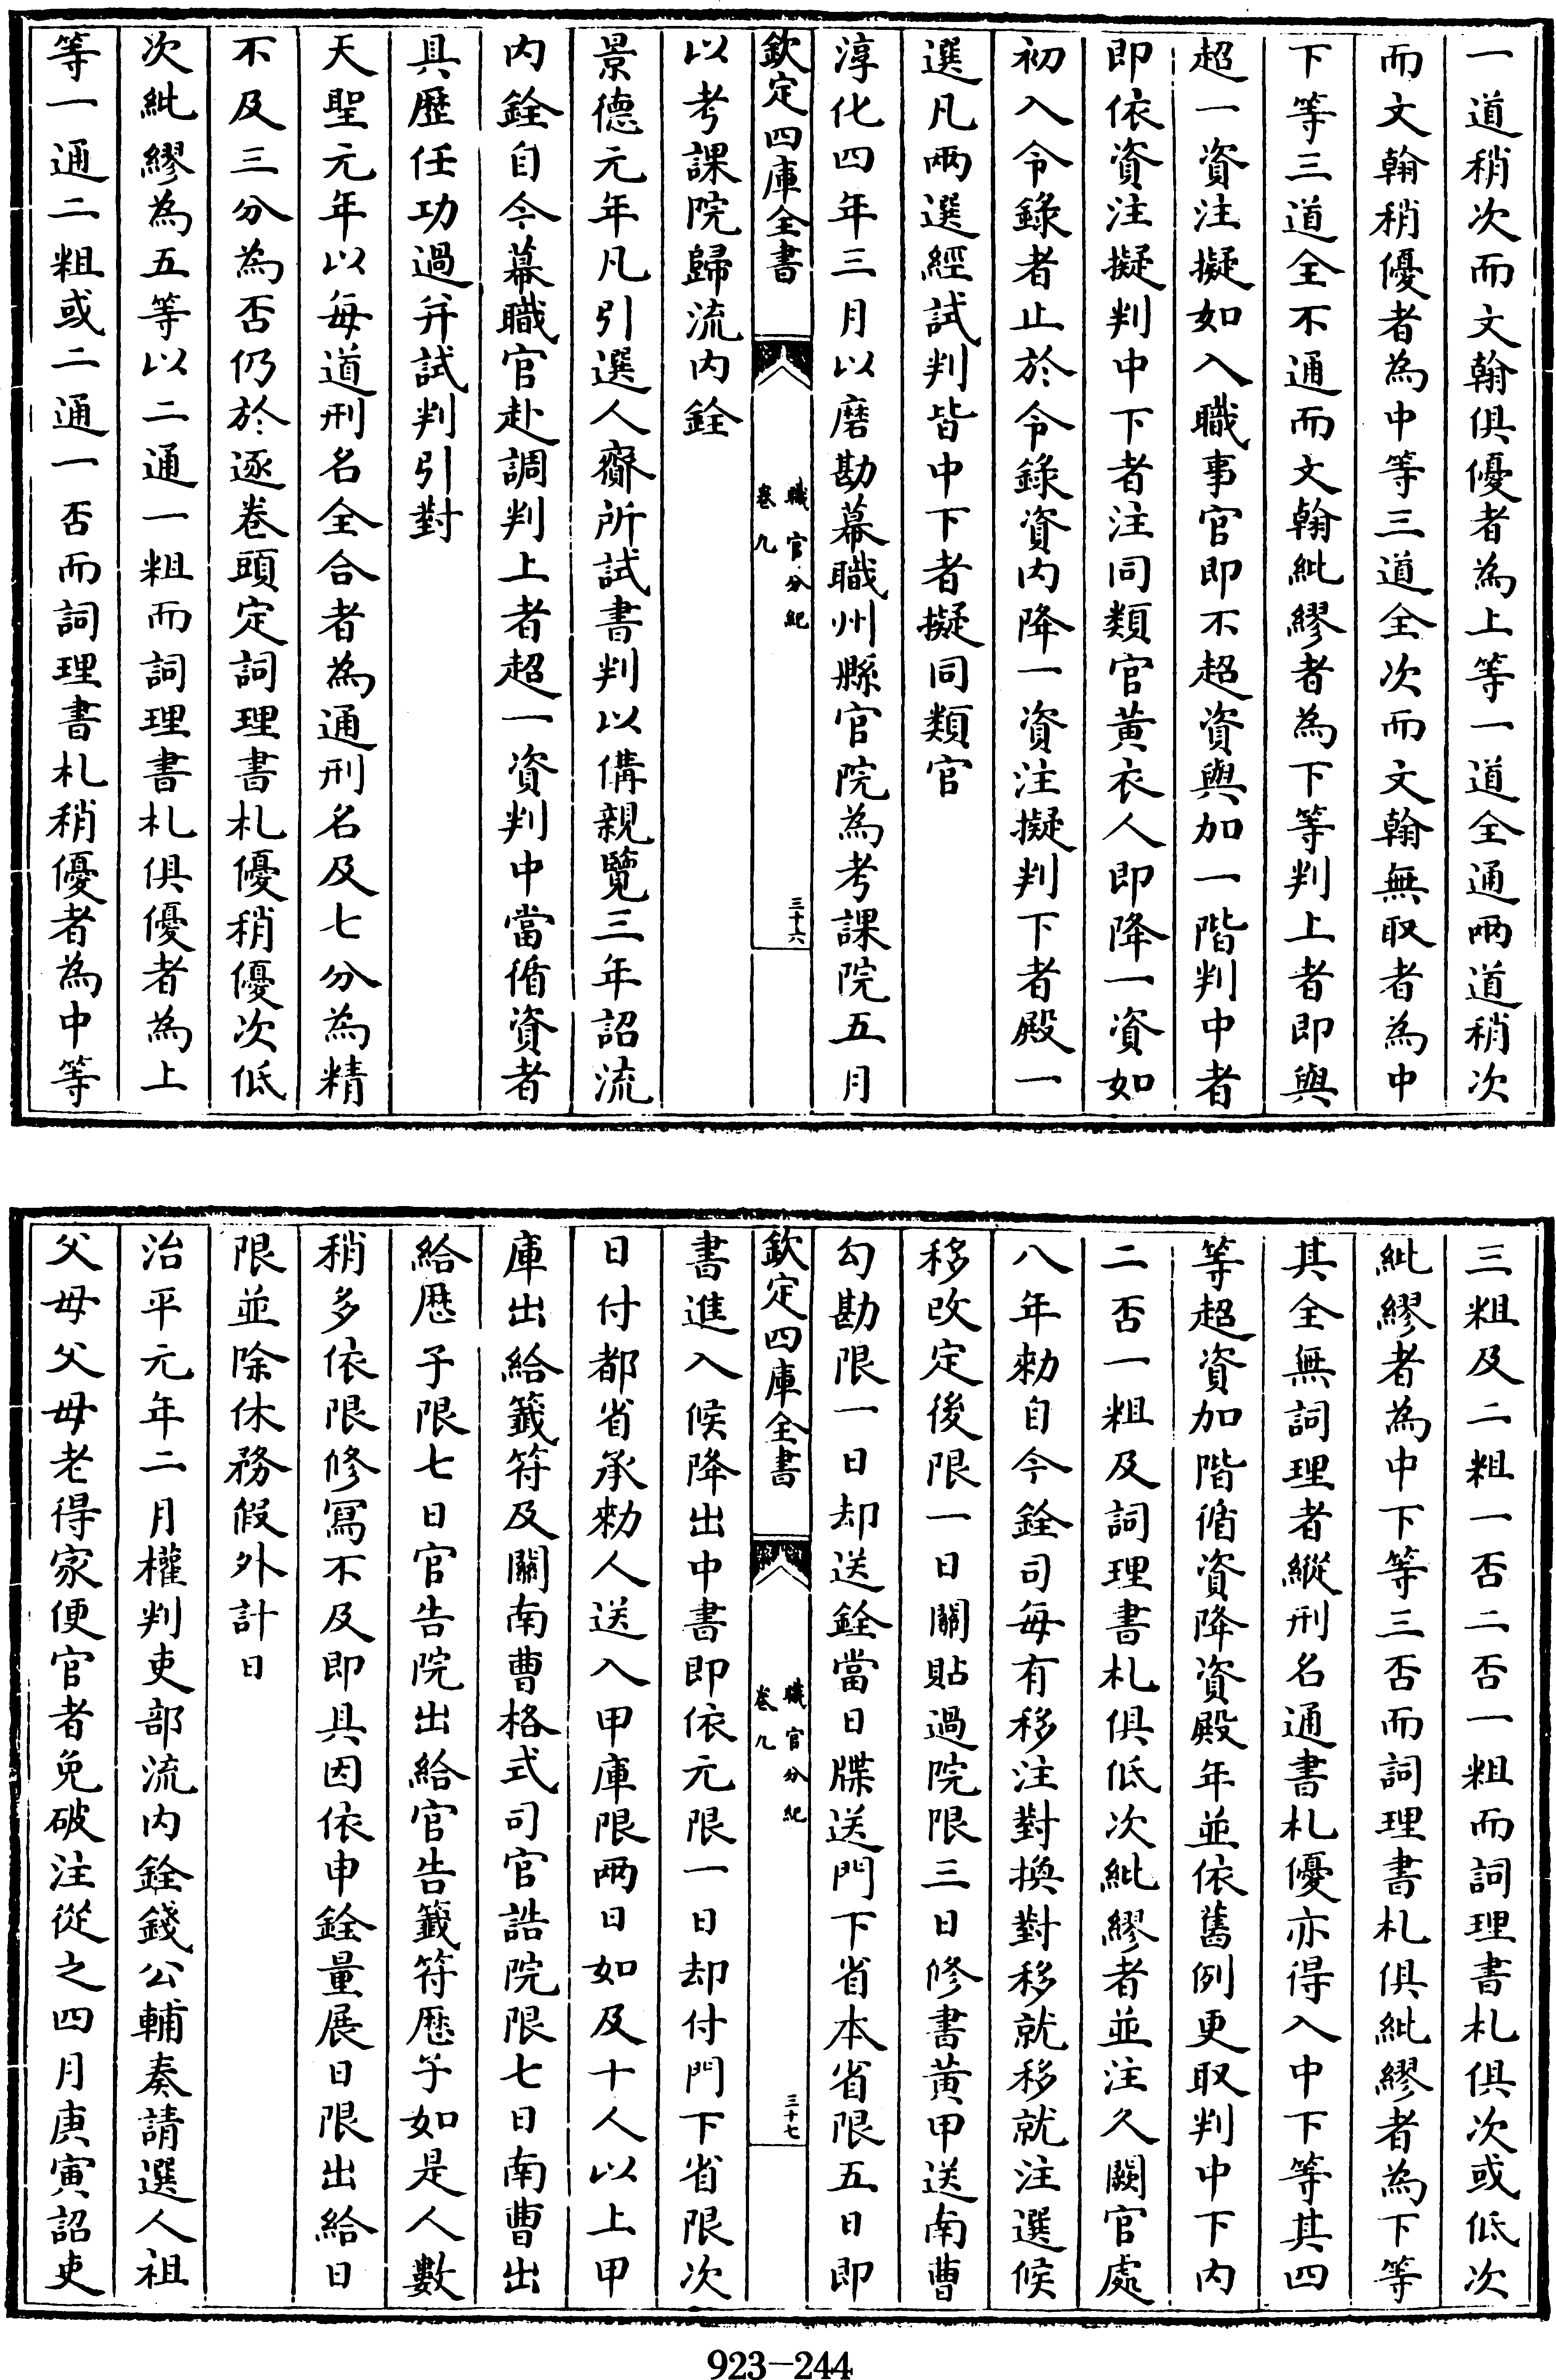 一道稍次而文翰俱優者為上等一道全通兩道稍次
而文翰稍優者為中等三道全次而文翰無取者為中
下等三道全不通而文翰紕繆者為下等判上者即與
超一資注擬如入職事官即不超資與加一階判中者
即依資注擬判中下者注同類官黃衣人即降一資如
初入令錄者止於令錄資内降一資注擬判下者殿一
選凡兩選經試判皆中下者擬同類官
淳化四年三月以磨勘幕職州縣官院為考課院五月
欽定四庫全書
職官分紀
卷九
三十六
以考課院歸流内銓
景德元年凡引選人齎所試書判以備親覽三年詔流
内銓自今幕職官赴調判上者超一資判中當循資者
具歷任功過并試判引對
天聖元年以每道刑名全合者為通刑名及七分為精
不及三分為否仍於逐卷頭定詞理書札優稍優次低
次紕繆為五等以二通一粗而詞理書札俱優者為上
等一通二粗或二通一否而詞理書札稍優者為中等
三粗及二粗一否二否一粗而詞理書札俱次或低次
紕繆者為中下等三否而詞理書札俱紕繆者為下等
其全無詞理者縱刑名通書札優亦得入中下等其四
等超資加階循資降資殿年並依舊例更取判中下内
二否一粗及詞理書札俱低次紕繆者並注久闕官處
八年勑自今銓司每有移注對換對移就移就注選候
移改定後限一日關貼過院限三日修書黃甲送南曹
勾勘限一日却送銓當日牒送門下省本省限五日即
欽定四庫全書
職官分紀
卷九
三十七
書進入候降出中書即依元限一日却付門下省限次
日付都省承勑人送入甲庫限兩日如及十人以上甲
庫出給籤符及關南曹格式司官誥院限七日南曹出
給歴子限七日官告院出給官告籤符歴子如是人數
稍多依限修寫不及即具因依申銓量展日限出給日
限並除休務假外計日
治平元年二月權判吏部流内銓錢公輔奏請選人祖
父母父母老得家便官者免破注從之四月庚寅詔吏
923—244